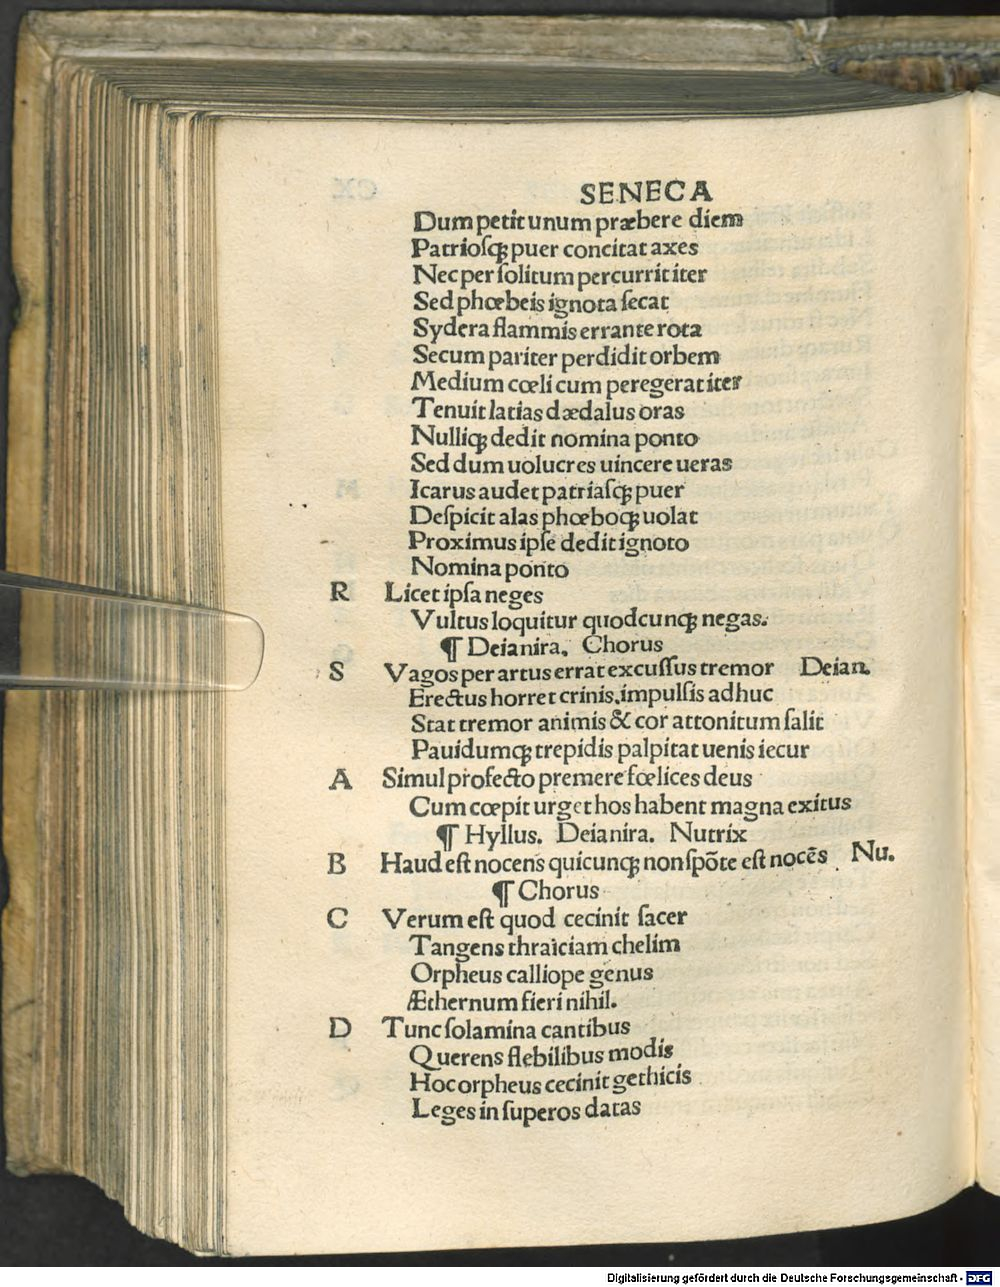 SENECA
Dum petit unum præbere diem
Patriosqꝫ puer concitat axes
Nec per ſolitum percurrit iter
Sed phœbeis ignota ſecat
Sydera flammis errante rota
Secum pariter perdidit orbem
Medium cœli cum peregerat iter
Tenuit latias dædalus oras
Nulliqꝫ dedit nomina ponto
Sed dum uolucres uincere ueras
Icarus audet patriaſqꝫ puer
Deſpicit alas phœboqꝫ uolat
Proximus ipſe dedit ignoto
Nomina ponto
R Licet ipſa neges
Vultus loquitur quodcunqꝫ negas.
¶ Deianira. Chorus
S Vagos per artus errat excuſſus tremor Deian.
Erectus horret crinis. impulſis adhuc
Stat tremor animis & cor attonitum ſalit
Pauidumqꝫ trepidis palpitat uenis iecur
A Simul profecto premere fœlices deus
Cum cœpit urget hos habent magna exitus
¶ Hyllus. Deianira. Nutrix
B Haud eſt nocens quicunqꝫ non ſpõte eſt nocẽs Nu.
¶ Chorus
C Verum eſt quod cecinit ſacer
Tangens thraiciam chelim
Orpheus calliope genus
Æthernum fieri nihil.
D Tunc ſolamina cantibus
Querens flebilibus modis
Hoc orpheus cecinit gethicis
Leges in ſuperos datas
Digitalisierung gefördert durch die Deutsche Forschungsgemeinschaft - DFG